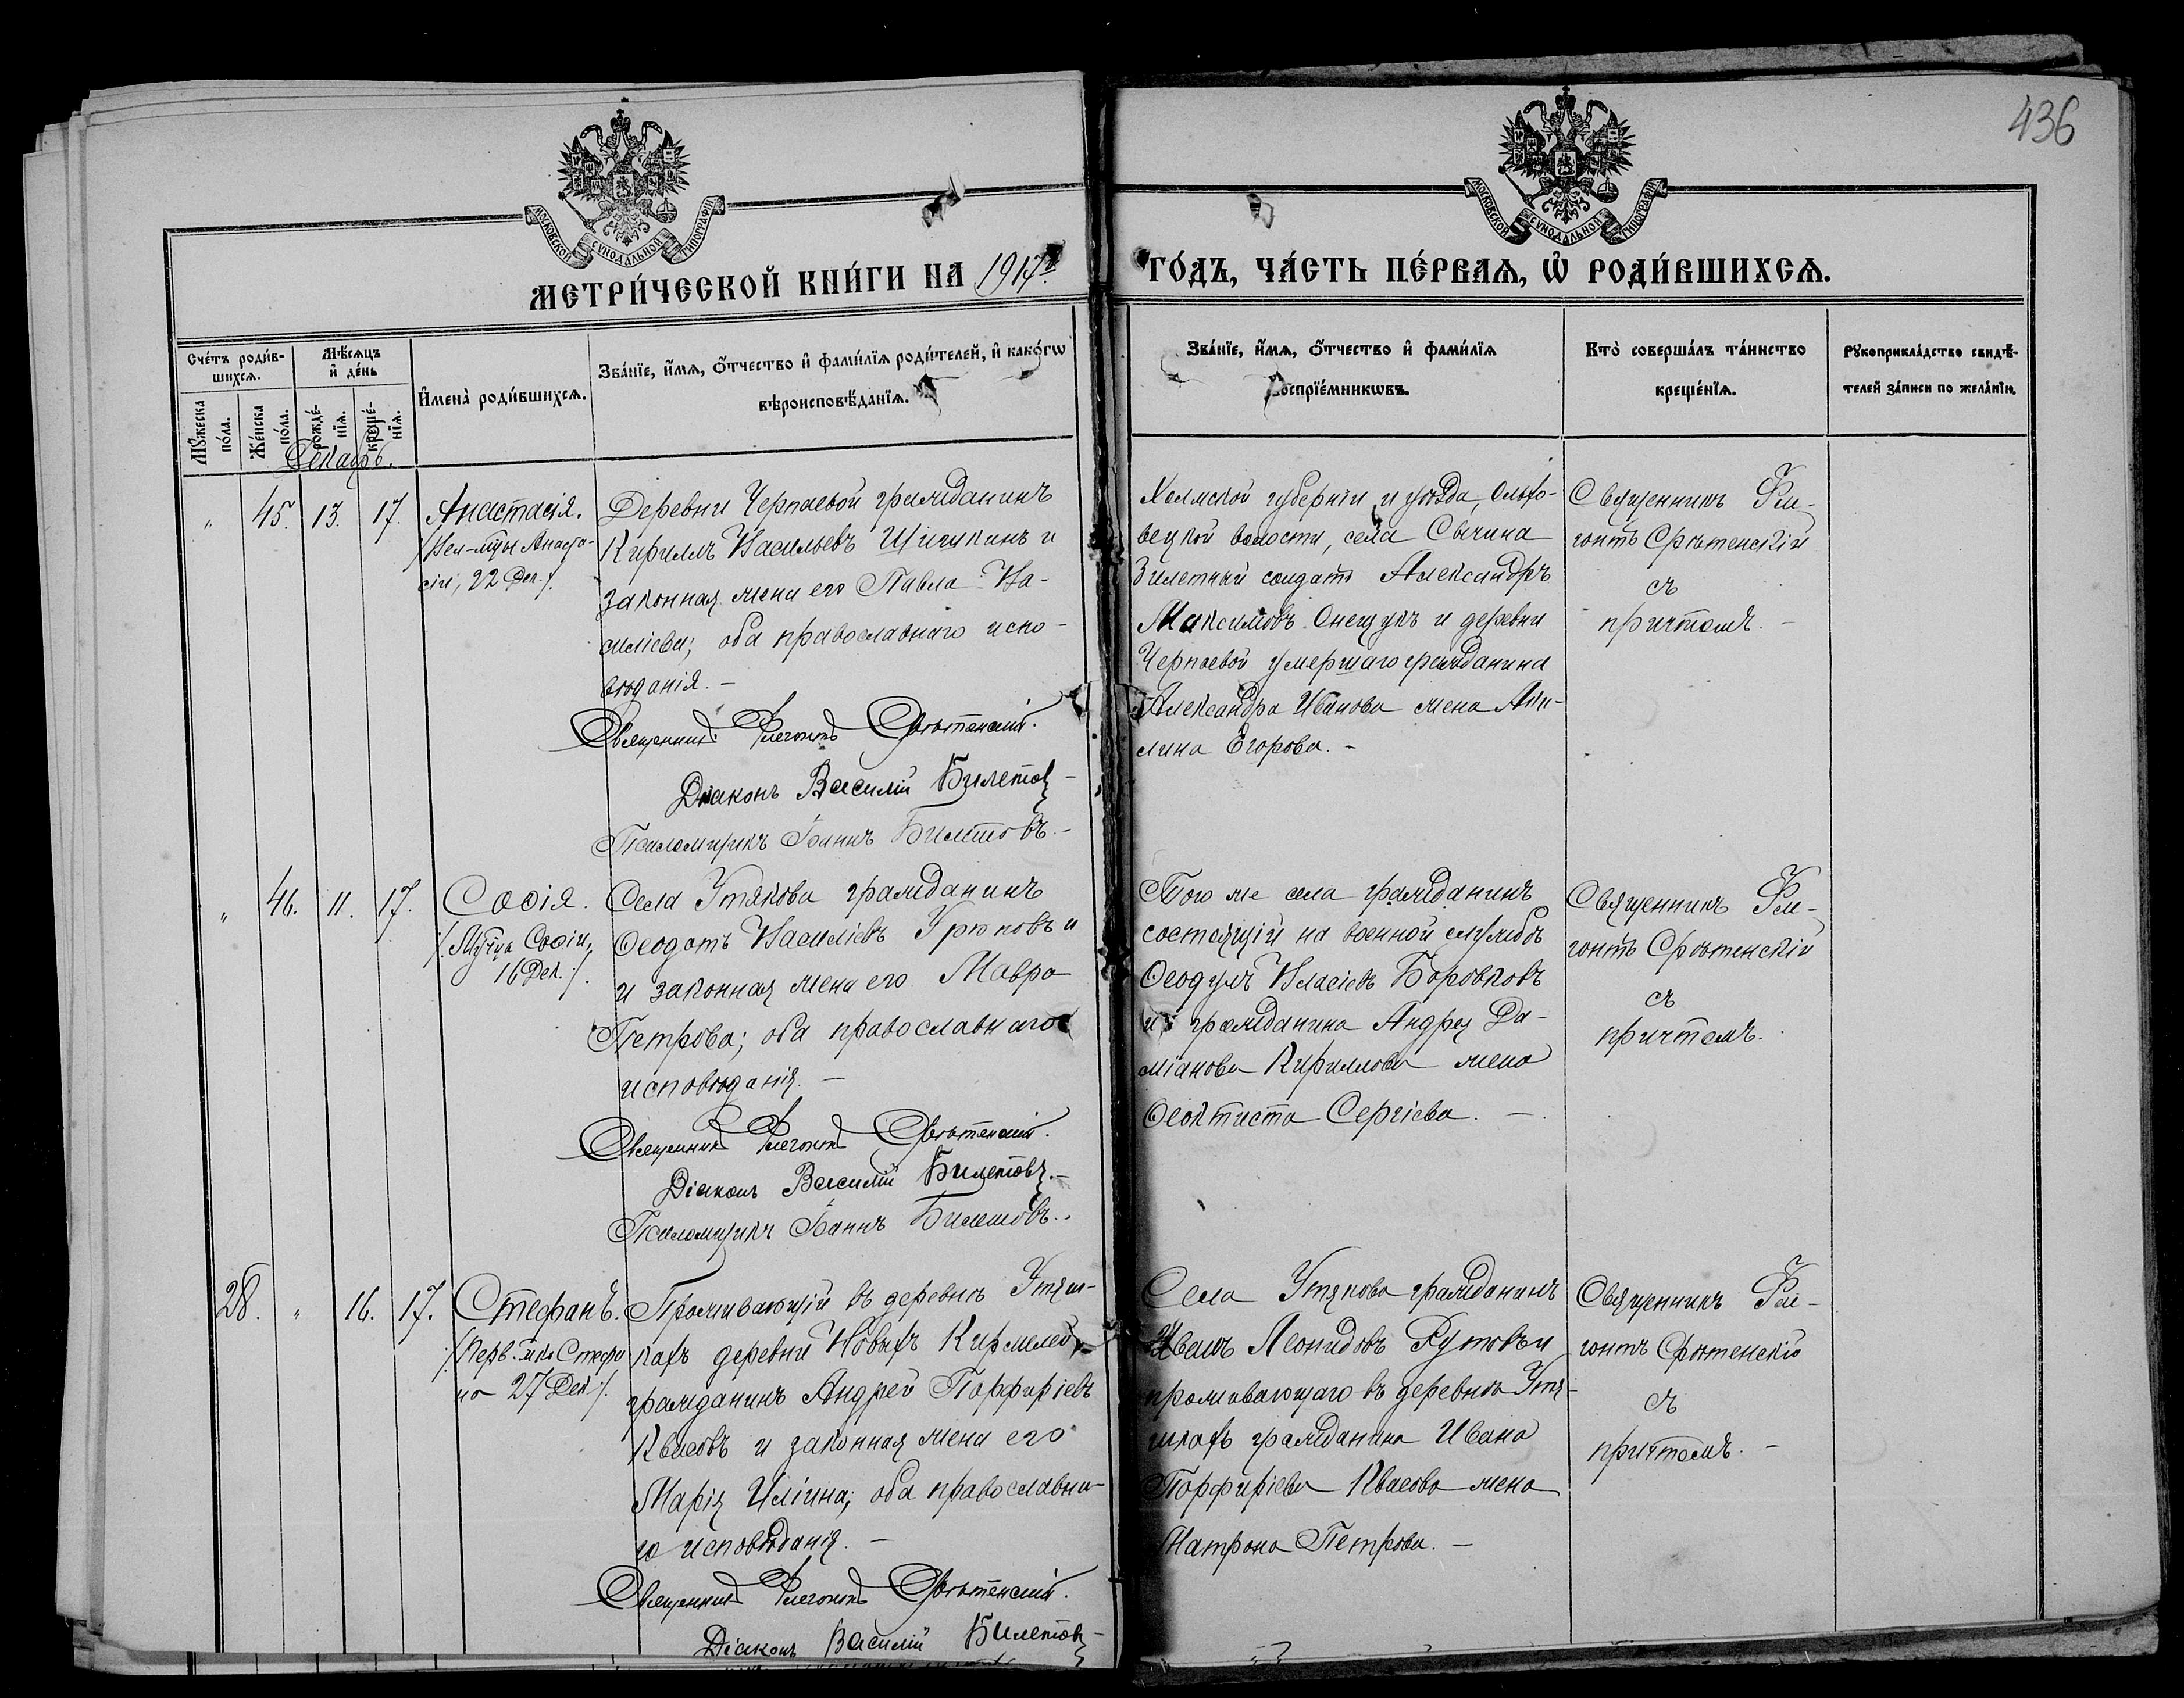 436
МОСКОВСКОЙ СУНОДАЛЬНОЙ ТИПОГРАФІИ
МОСКОВСКОЙ СУНОДАЛЬНОЙ ТИПОГРАФІИ
МЕТРИ́ЧЕСКОЙ КНИ́ГИ НА 1917 г.
ГО́ДЪ, ЧА́СТЬ ПЕ́РВАѦ, Ѿ РОДИ́ВШИХСѦ.
Сче́тъ роди́в-
шихсѧ.
Мꙋ́жеска по́ла.
Же́нска по́ла.
Мѣ́сѧцъ
и҆ де́нь
рожде́-
нїѧ.
креще́-
нїѧ.
И҆мена̀ роди́вшихсѧ.
Зва́нїе, и҆́мѧ, ѻ҆́тчество и҆ фами́лїѧ роди́телей, и҆ како́гѡ
вѣроисповѣ́данїѧ.
Зва́нїе, и҆́мѧ, ѻ҆́тчество и҆ фами́лїѧ
воспрїе́мникѡвъ.
Кто̀ соверша́лъ та́инство
креще́нїѧ.
Рꙋкоприкла́дство свидѣ́-
телей за́писи по жела́нїю.
Декабрь.
" 45. 13. 17.
Анастасія.
/Вел-мцы Анаста-
сіи, 22 Дек./.
Деревни Черпаевой гражданинъ
Кириллъ Васильевъ и
законная жена его Павла Ва-
силіева; оба православнаго испо-
вѣданія. –
Священникъ Флегонтъ Срѣтенскій.
Діаконъ Василій Билетовъ
Псаломщикъ Іоаннъ Билетовъ. –
Холмской губерніи и уѣзда, Ольхо-
вецкой волости, села Сычина
билетный солдатъ Александръ
Максимовъ Онещукъ и деревни
Черпаевой умершаго гражданина
Александра Иванова жена Аки-
лина Егорова. –
Священникъ Фле-
гонтъ Срѣтенскій
съ
причтомъ. –
" 46. 11. 17.
Софія.
/Мучцы Софіи,
16 Дек./
Села Утякова гражданинъ
Ѳеодотъ Василіевъ Урюповъ и
и законная жена его Мавра
Петрова; оба православнаго
исповѣданія. –
Священникъ Флегонтъ Срѣтенскій.
Діаконъ Василій Билетовъ. –
Псаломщикъ Іоаннъ Билетовъ.
Того же села гражданинъ
состоящій на военной службѣ
Ѳеодулъ Власіевъ Боровковъ
и гражданина Андрея Да-
міанова Кириллова жена
Ѳеоктиста Сергіева. –
Священникъ Фле-
гонтъ Срѣтенскій
съ
причтомъ.
28. " 16. 17.
Стефанъ.
/Перв. мка Стефа
на 27 Дек./.
Проживающій въ деревнѣ Утяш-
кахъ деревни Новыхъ Киржелей
гражданинъ Андрей Порфиріевъ
Квасовъ и законная жена его
Марія Иліина; оба православна-
го исповѣданія. –
Священникъ Флегонтъ Срѣтенскій.
Діаконъ Василій Билетовъ
Села Утякова гражданинъ
Иванъ Леонидовъ и
проживающаго въ деревнѣ Утя-
шкахъ гражданина Ивана
Порфиріева Квасова жена
Матрона Петрова. –
Священникъ Фле-
гонтъ Срѣтенскій
съ
причтомъ. –